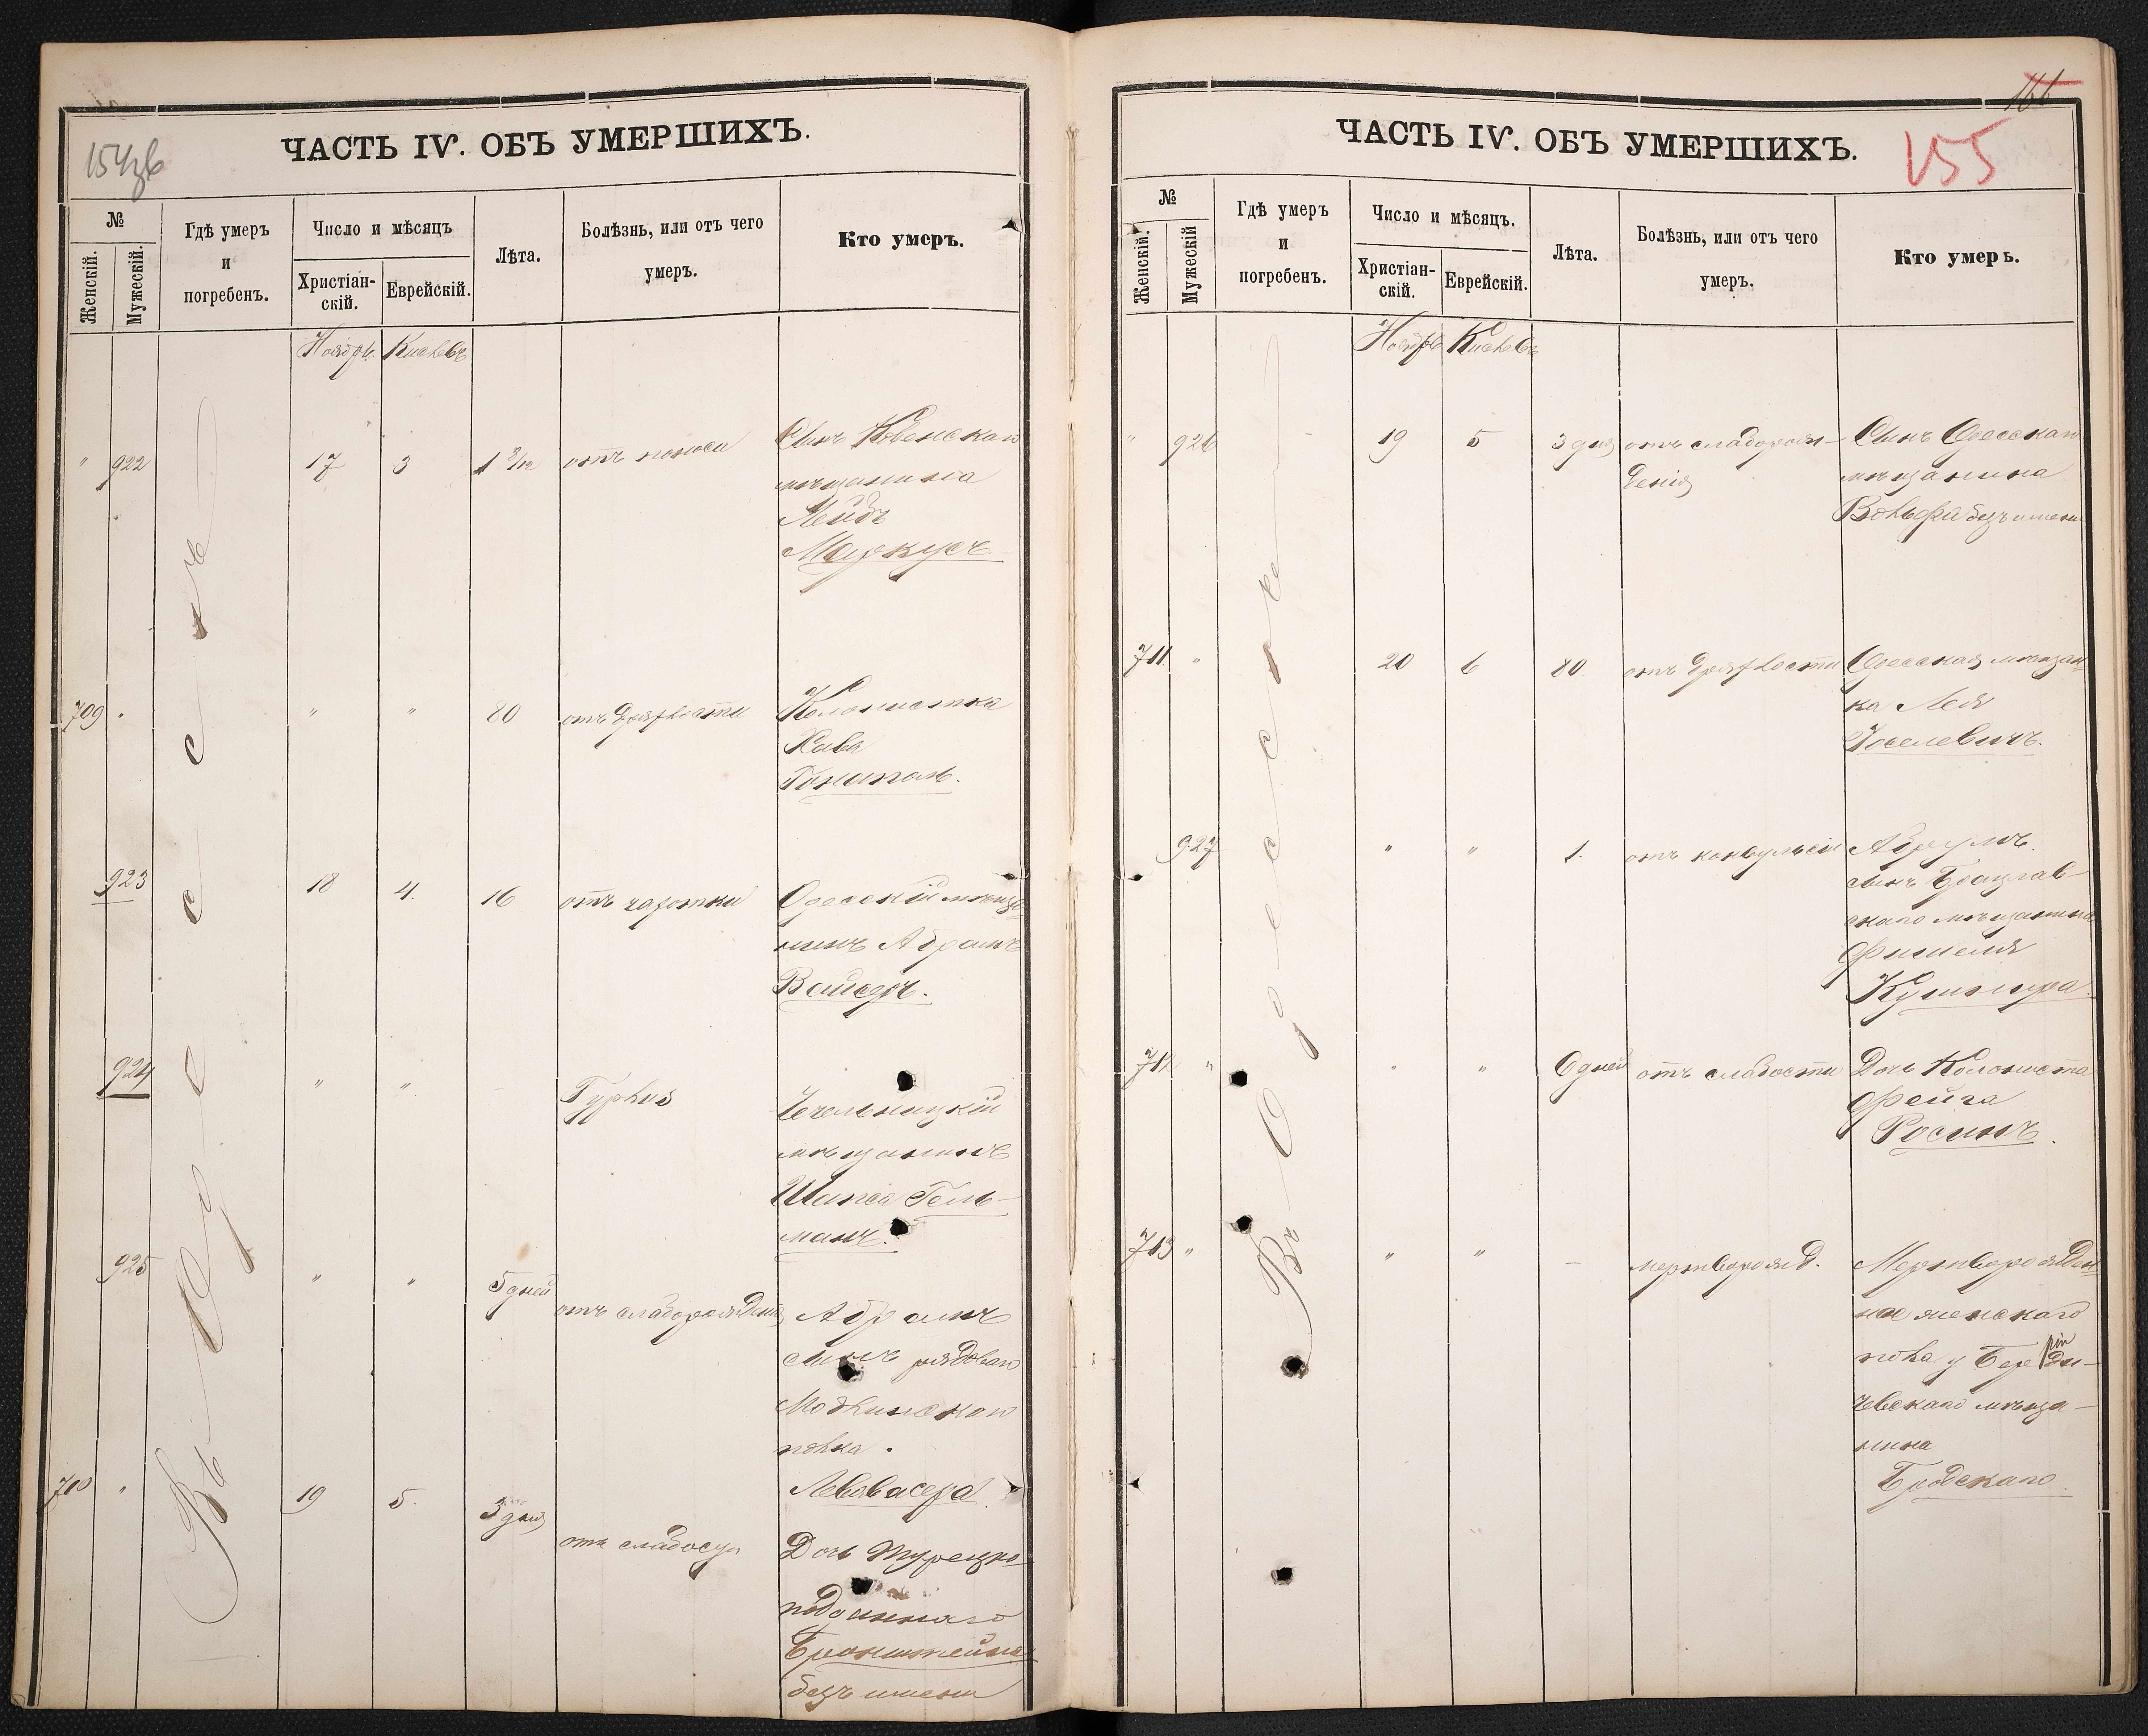 154об
ЧАСТЬ IV. ОБЪ УМЕРШИХЪ.
№
Женскій.
Мужескій.
Гдѣ умеръ
и
погребенъ.
Число и мѣсяцъ
Христіан-
скій.
Еврейскій.
Лѣта.
Болѣзнь, или отъ чего
умеръ.
Кто умеръ.
Ноябрь Кислевъ
Въ Одессѣ
" 922 17 3 1 8/12 отъ поноса Сынъ Ковенскаго
мѣщанина
Лейбъ
Маркусъ
709 " " " 80 отъ дряхлости Колонистка
Хава
Гониполь.
923 18 4. 16 отъ чахотки Одесскій мѣща-
нинъ Абрамъ
Вайсеръ.
924 " " Typhus Чечельницкій
мѣщанинъ
Шапса Гель-
манъ.
925 " " 5 дней отъ слаборожденія Абрамъ
сынъ рядоваго
Модлинскаго
полка.
Левовасера
710 " 19 5. 3 дня отъ слабости Дочь турецко-
подданнаго
Бронштейна
безъ имени
166
155
ЧАСТЬ IV. ОБЪ УМЕРШИХЪ.
№
Женскій.
Мужескій
Гдѣ умеръ
и
погребенъ.
Число и мѣсяцъ.
Христіан-
скій.
Еврейскій.
Лѣта.
Болѣзнь, или отъ чего
умеръ.
Кто умеръ.
Ноябрь Кислевъ
Въ Одессѣ
" 926 19 5 3 дня отъ слаборож- Сынъ Одесскаго
денія мѣщанина
Вольфа безъ имени
711. " 20 6 80. отъ дряхлости Одесская мѣщан-
ка Лея
Іоселевичъ.
927 " " 1. отъ конвульсіи Абрумъ
сынъ Брацлав-
скаго мѣщанина
Фишеля
Кушнира.
712 " " " 6 дней отъ слабости Дочь Колониста
Фейга
Росинъ.
713 " " " - мертворожд. Мертворожден-
ное женскаго
пола у Берди-
чевскаго мѣща-
нина
Бродскаго.